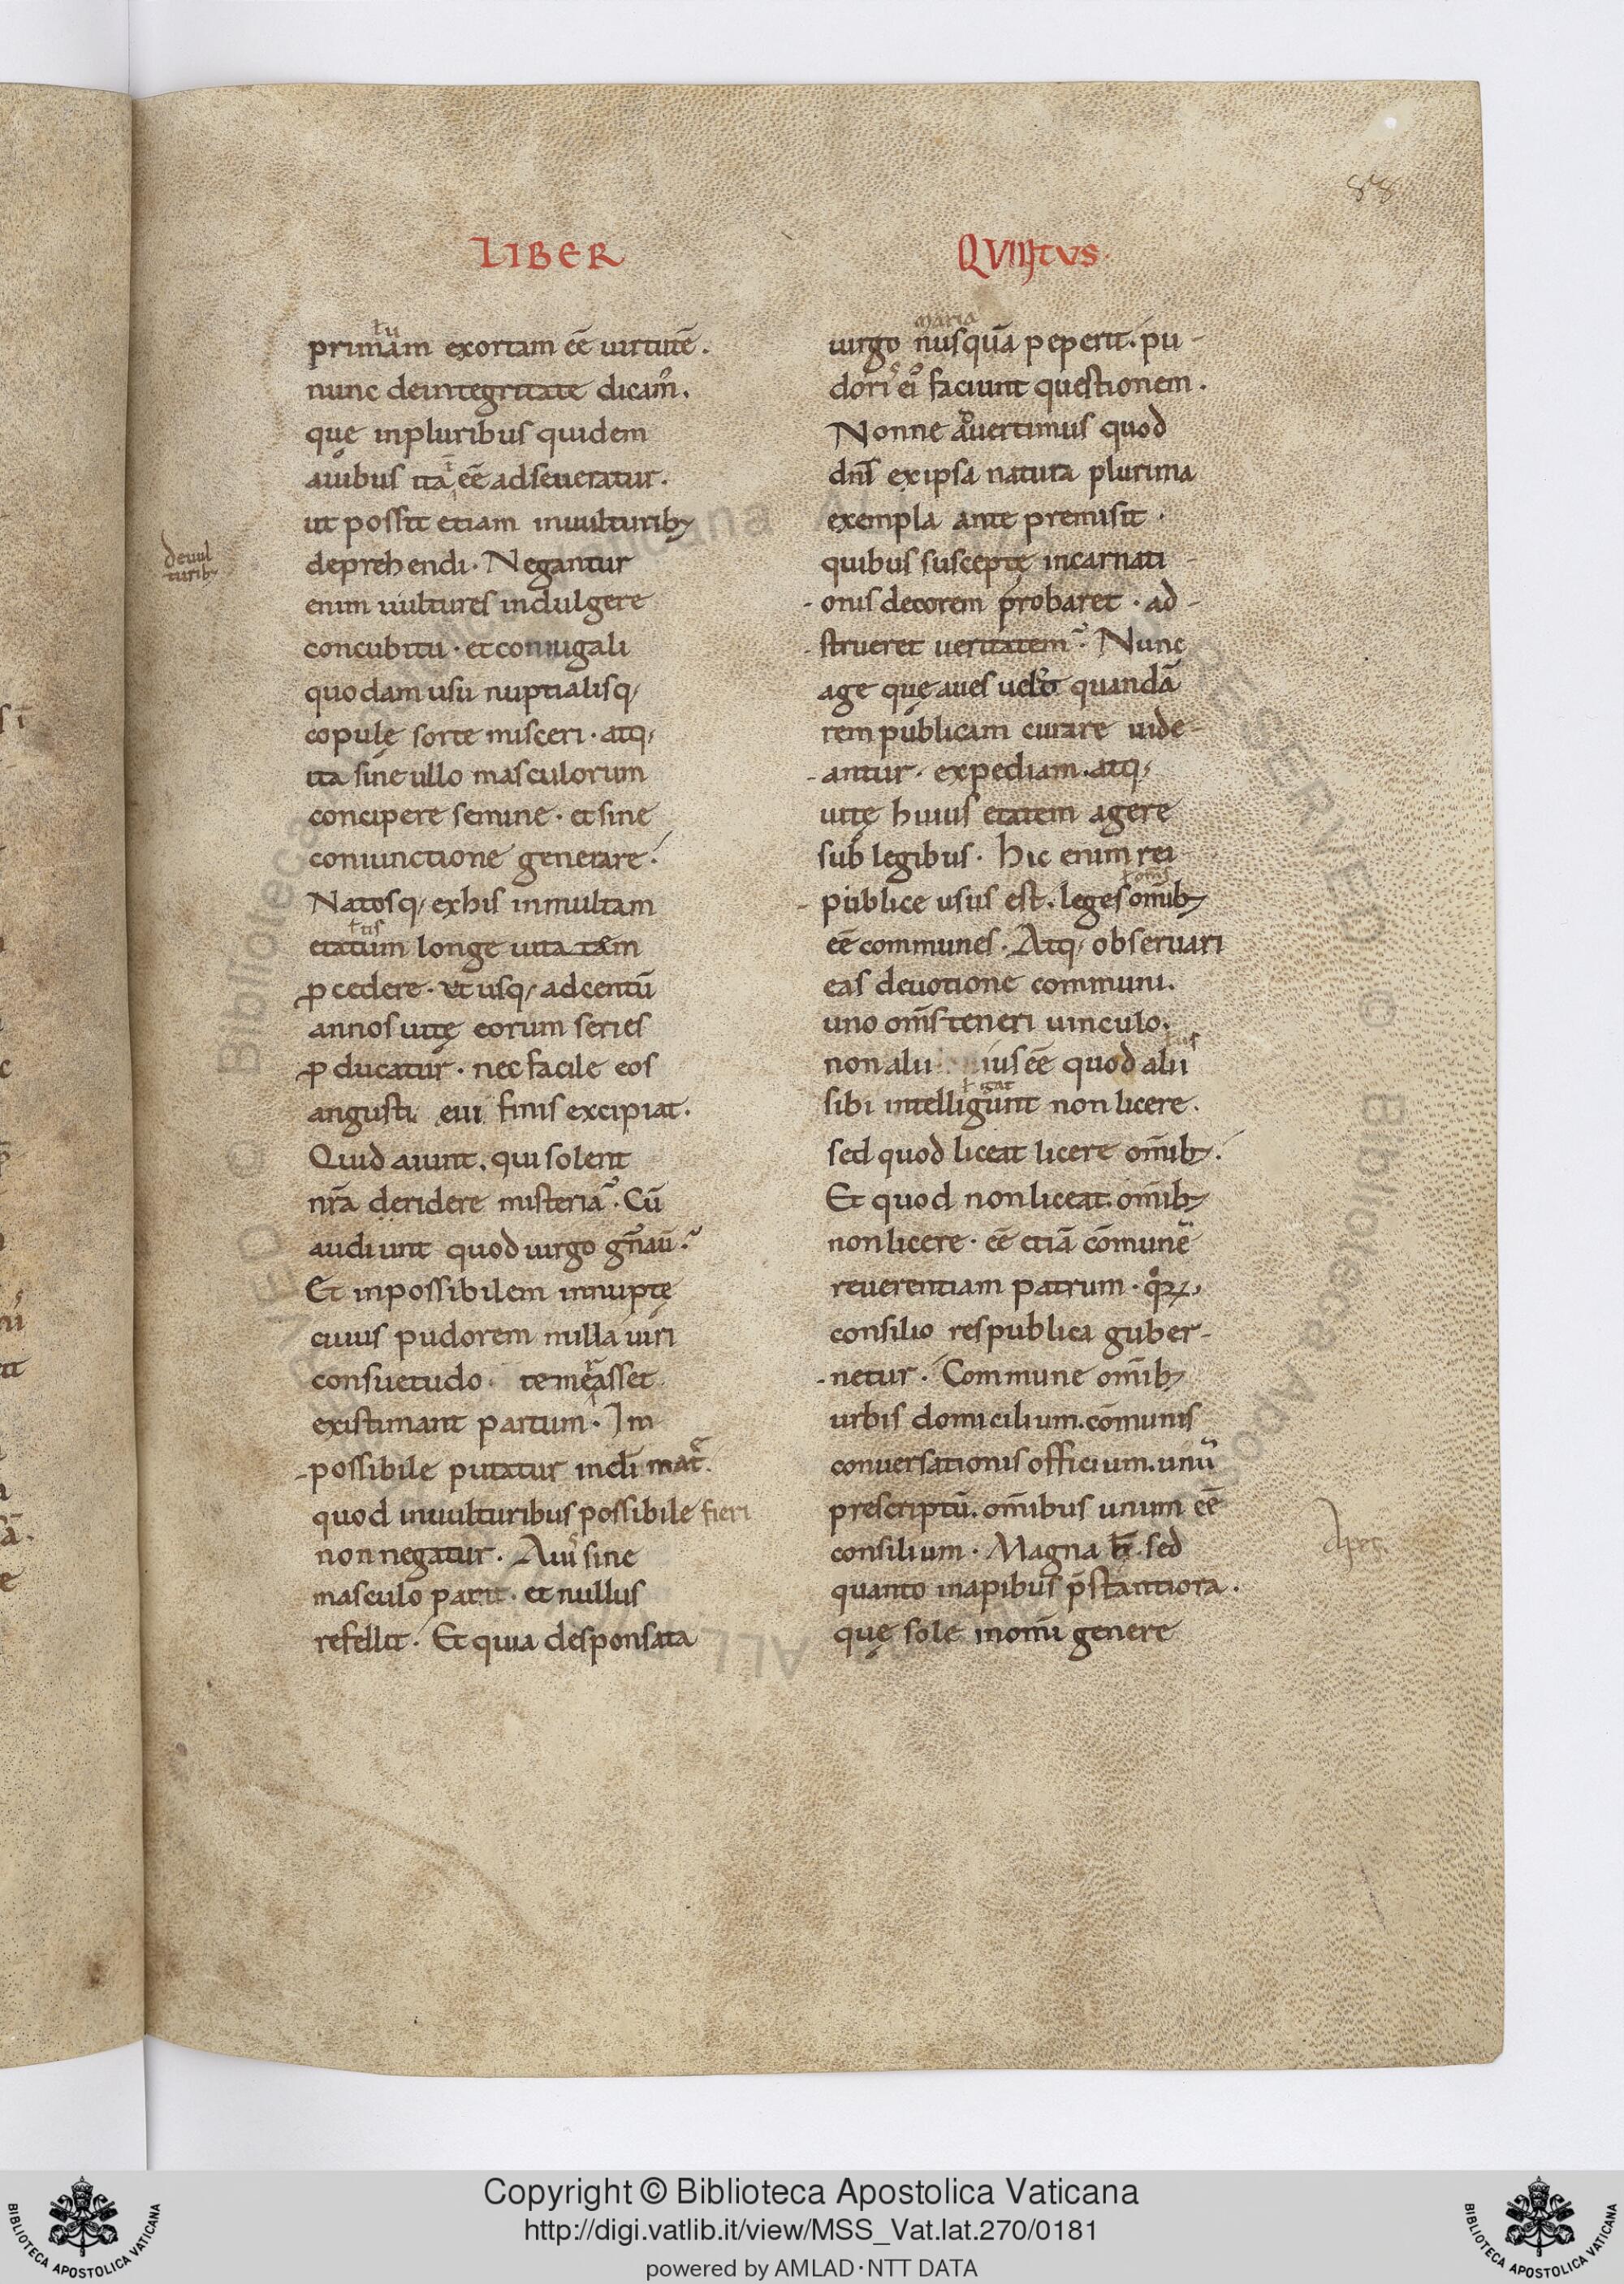 88
LIBER
ł u
primam exortam eē uirtutē.
nunc deintegritate dicam᷒.
quę inpluribus quidem
auibus ita eē adseueratur.
ut possit etiam inuulturib;
de uul
turib;
deprehendi. Negantur
enim uultures indulgere
concubitu. et coniugali
quodam usu nuptialisq;
copulę sorte misceri. atq;
ita sine ullo masculorum
concipere semine. et sine
coniunctione generare.
Natosq; exhis inmultam
ł tis
etatum longe uita tam
ꝓcedere. ut usq; adcentū
annos uitę eorum series
ꝓducatur. nec facile eos
angusti eui finis excipiat.
Quid aiunt. qui solent
nr̄a deridere misteria. Cū
audiunt quod uirgo gn̄auit.
Et inpossibilem innuptę
cuius pudorem nulla uiri
consuetudo temerasset
existimant partum. Im
possibile putatur indi matr̄e.
quod inuulturibus possibile fieri
non negatur. Auis sine
masculo parit. et nullus
refellit. Et quia desponsata
QVINTVS.
maria
uirgo nusquā peperit. pu
dori ei᷒ faciunt questionem.
Nonne aduertimus quod
dn̄s exipsa natura plurima
exempla ante premisit.
quibus susceptę incarnati
onis decorem probaret. ad
strueret ueritatem. Nunc
age quę aues uelut quandā
rem publicam curare uide
antur. expediam. atq;
uitę huius etatem agere
sub legibus. Hic enim rei
ł om̄s
publice usus est. leges om̄ib;
eē communes. Atq; obseruari
eas deuotione communi.
uno om̄s teneri uinculo.
ł ius
non alii ius eē quod alii
ł igat
sibi intelligunt non licere.
sed quod liceat licere om̄ib;.
Et quod non liceat. om̄ib;
non licere. eē etiā cōmunē
reuerentiam patrum. quoꝝ
consilio respublica guber
netur. Commune om̄ib;
urbis domicilium. cōmunis
conuersationis officium. unū
prescriptū. om̄ibus unum eē
consilium. Magna h̄ę. sed
Apes.
quanto inapibus p̄stantiora.
quę sole inomni genere
Copyright © Biblioteca Apostolica Vaticana
http://digi.vatlib.it/view/MSS_Vat.lat.270/0181
powered by AMLAD·NTT DATA
BIBLIOTECA APOSTOLICA VATICANA
BIBLIOTECA APOSTOLICA VATICANA